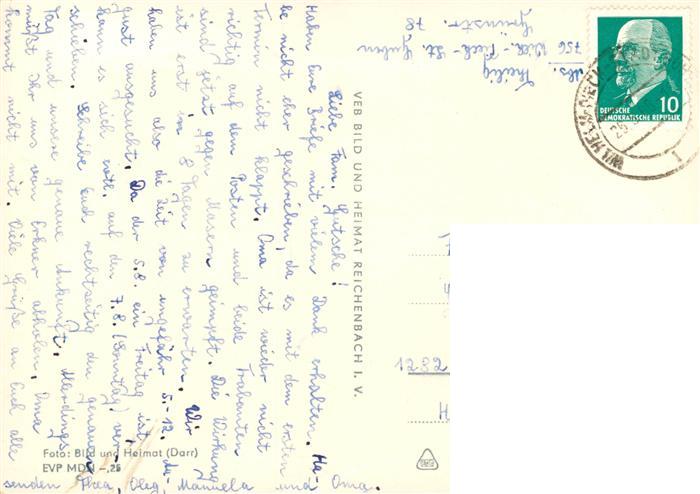 Liebe Fam. Gutsche!
Haben Eure Briefe mit vielem Dank erhalten. Ha-
be nicht eher geschrieben, da es mit dem ersten
Termin nicht klappt. Oma ist wieder nicht
richtig auf dem Posten und beide Trabanten
sind jetzt gegen Masern geimpft. Die Wirkung
ist erst in 8 Tagen zu erwarten. Wir
haben uns also die Zeit von ungefähr 5.-12. Au-
gust ausgesucht. Da der 5.8. ein Freitag ist,
kann es sich evtl. auf den 7.8. (Sonntag) ver-
schieben. Schreibe Euch rechtzeitig den genauen
Tag und unsere genaue Ankunft. Allerdings
müßt Ihr uns von Erkner abholen. Oma
kommt nicht mit. Viele Grüße an Euch alle
senden Thea, Oleg, Manuela und Oma.
Abs. Theilig
756 Wilh.-Pieck-St. Guben
Grünstr. 78
VEB BILD UND HEIMAT REICHENBACH I. V.
Foto: Bild und Heimat (Darr)
EVP MDN -,25
10
DEUTSCHE
DEMOKRATISCHE REPUBLIK
1282
H